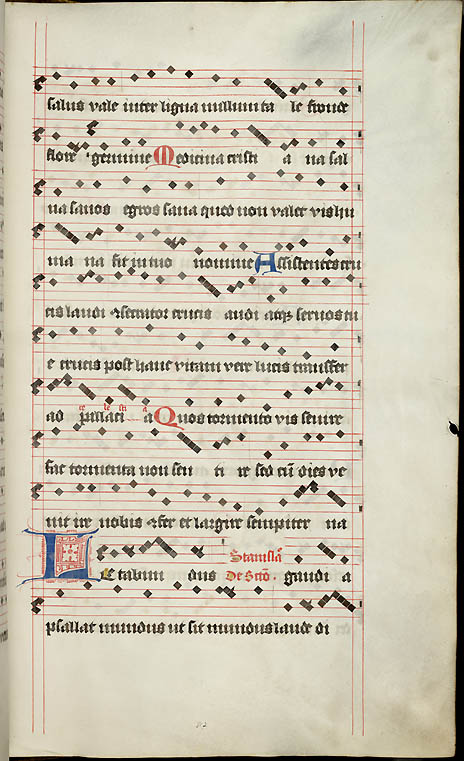 salus vale inter ligna nullum ta le fronde
flore germine Medicina cristi a na sal
na sanos egros sana quod non valet vis hu
ma na fit in tuo nomine Assistentes cru
cis laudi
audi atq servos tu
e crucis post hanc vitam vere lucis transfer
ad pallaci a Quos tormento vis servire
fac tormenta non sen ti re sed cū dies
nobis et largire sempiter na
Stanisla
Le tabun dus De Scto. gaudi a
psallat mundus ut sit mundus laude di